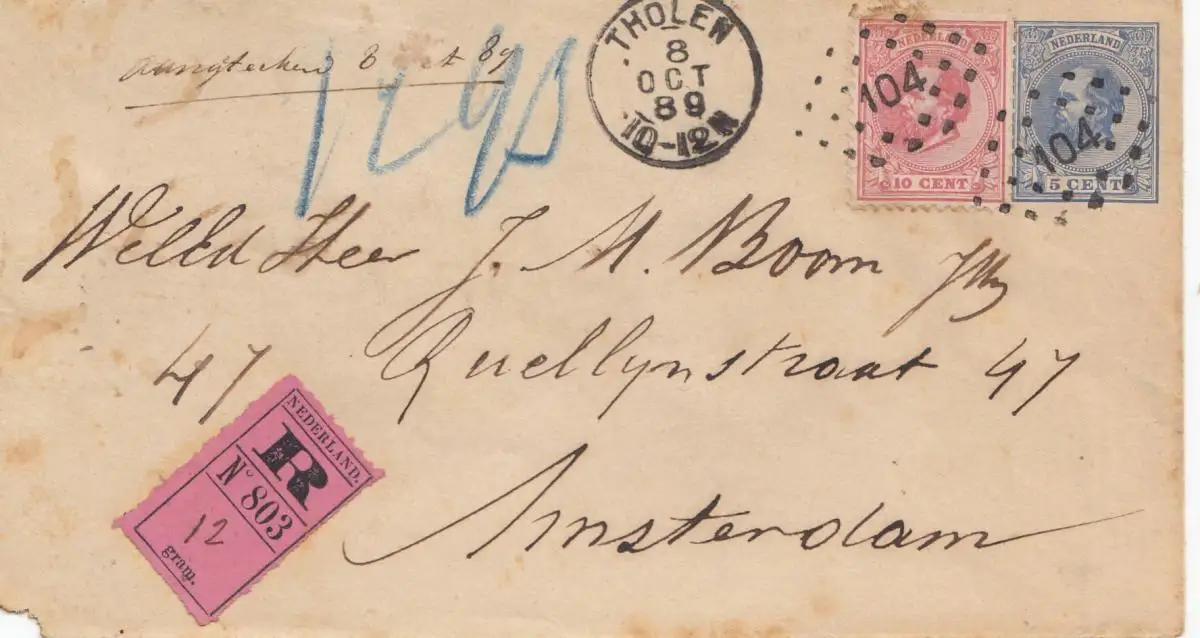 aangeteekend 8 Oct 89
THOLEN
8
OCT
89
10-12N
NEDERLAND
104
10 CENT
NEDERLAND
104
5 CENT
J. M. Boom
47 Quellynstraat 47
Amsterdam
NEDERLAND.
R
No 803
12
gram.